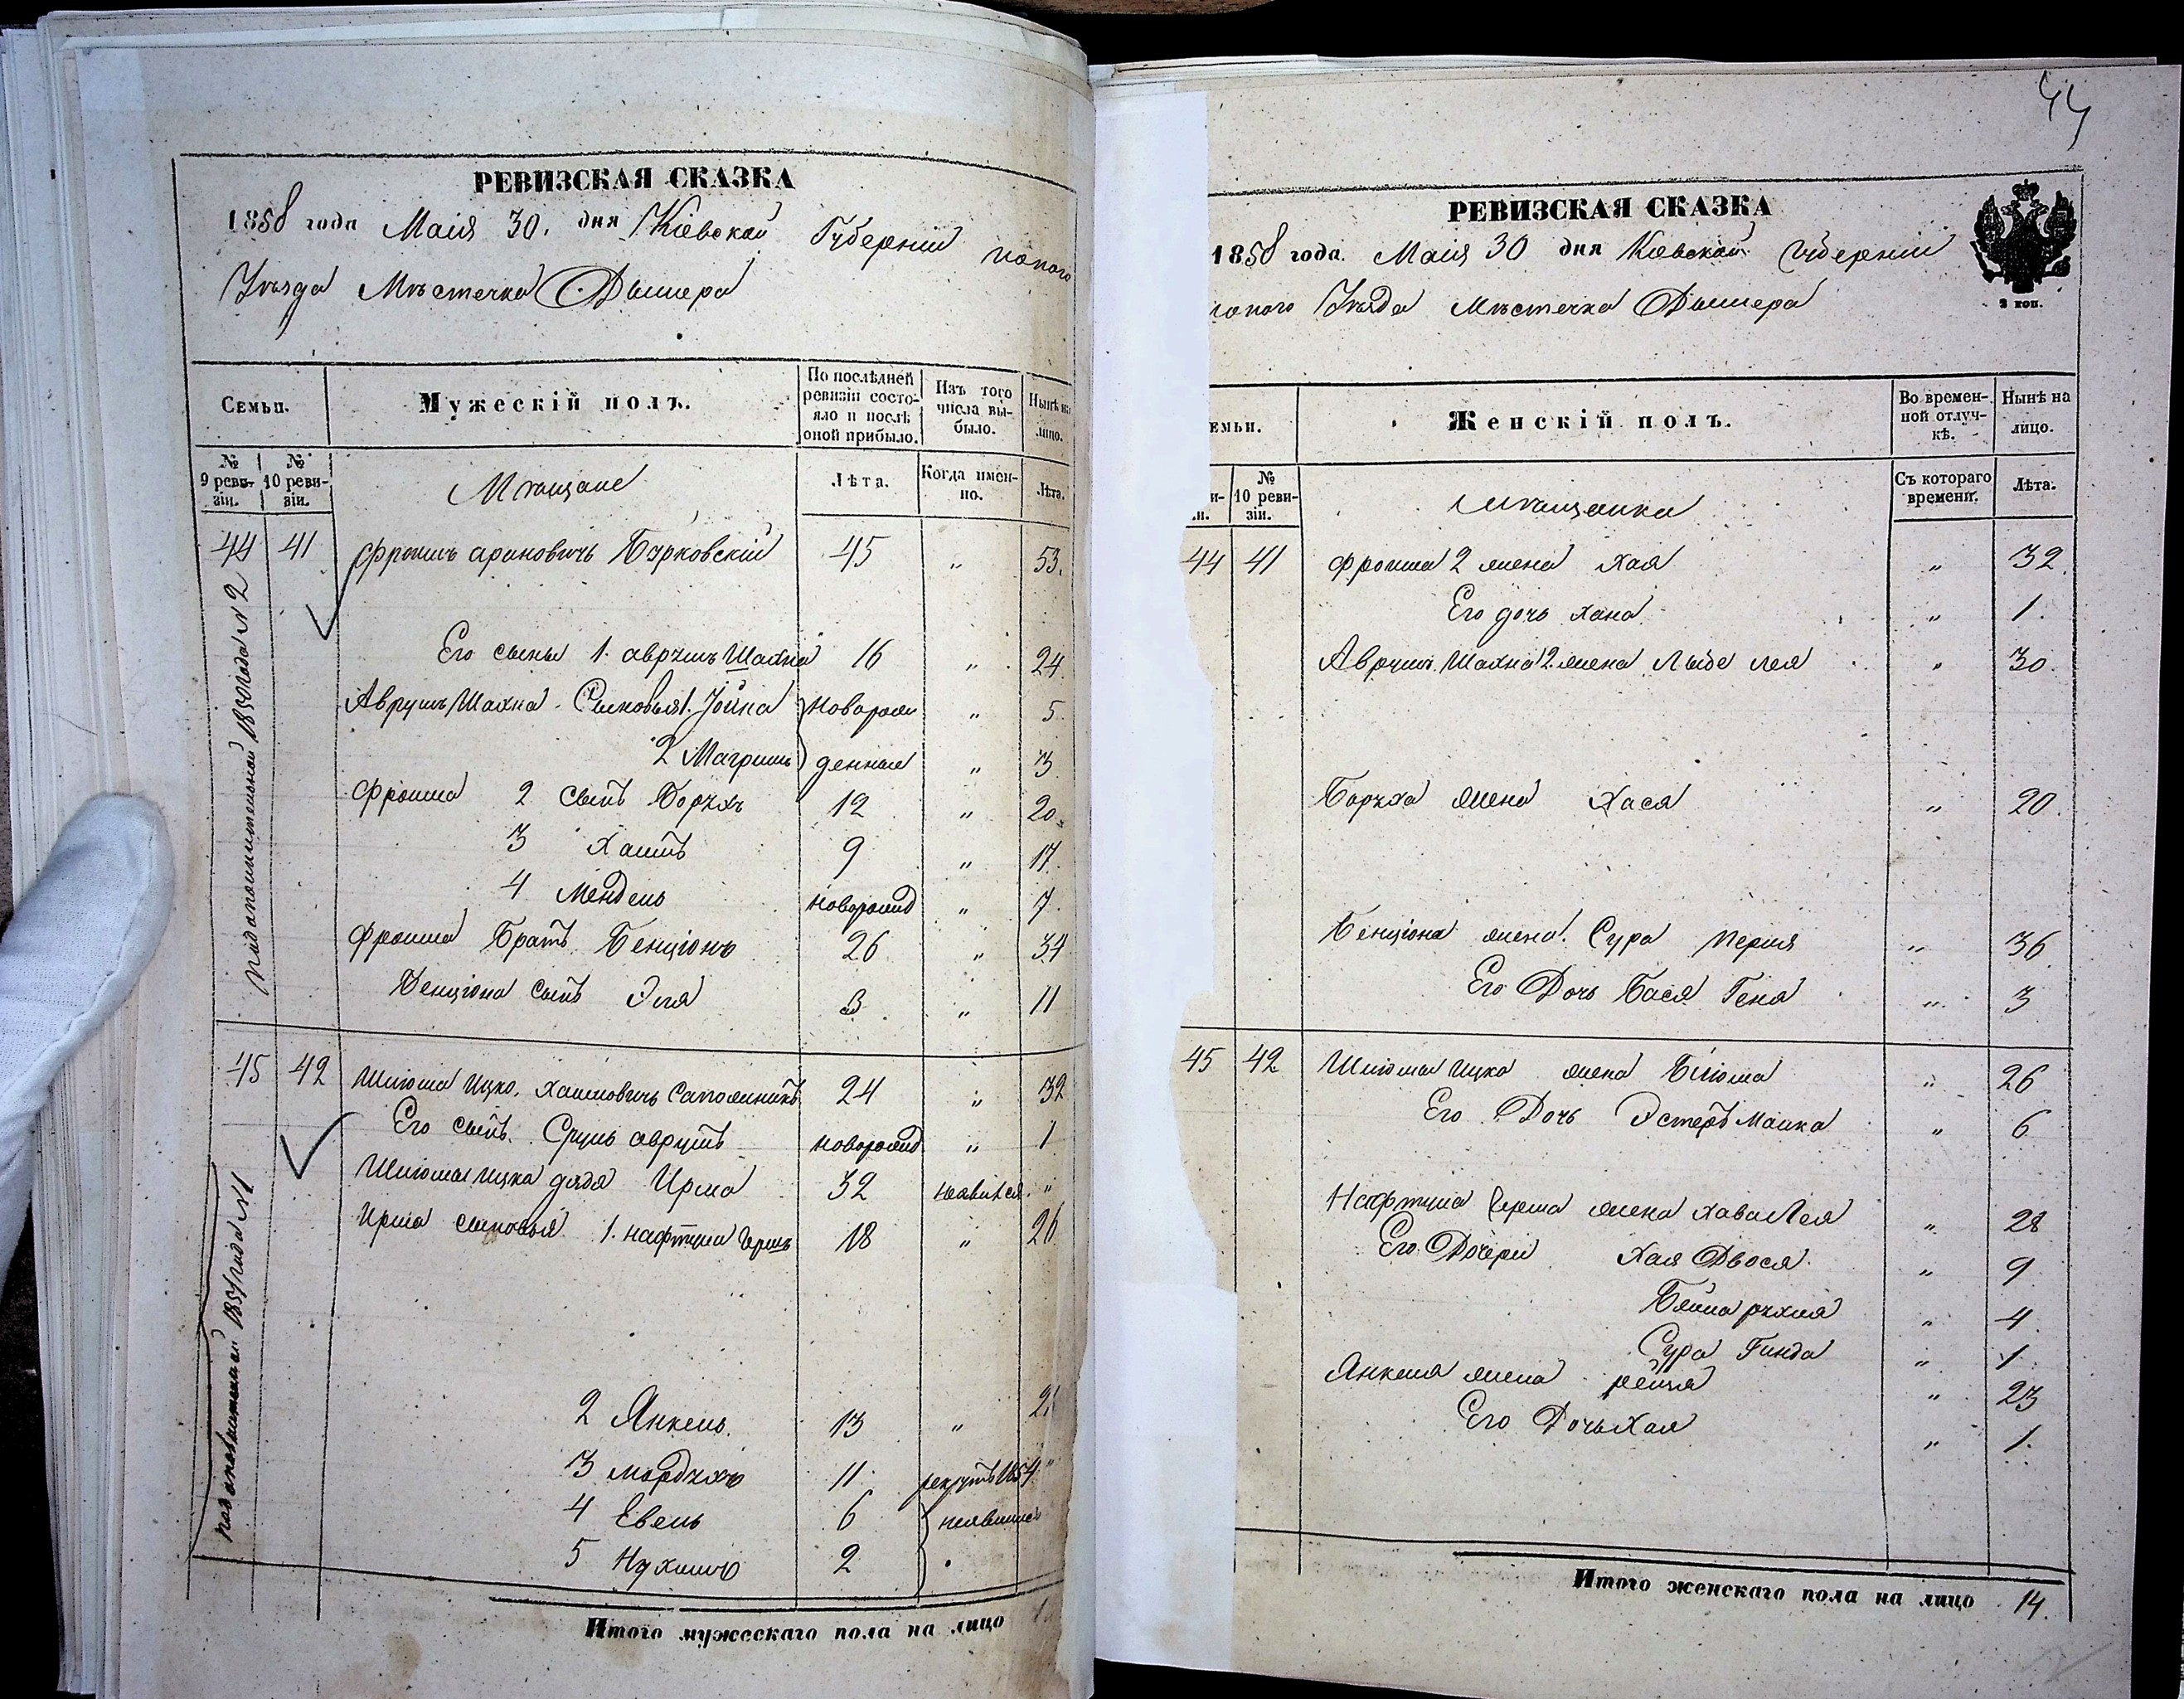 РЕВИЗСКАЯ СКАЗКА
1858 года Маія 30. дня Кіевской Губерніи
Уѣзда Мѣстечка Дымера
Семьи.
Мужескій полъ.
По послѣдней ревизіи состояло и послѣ оной прибыло.
Изъ того числа выбыло.
Нынѣ на лицо.
№ 9 ревизіи.
№ 10 ревизіи.
Мѣщане
Лѣта.
Когда именно.
Лѣта.
44 41 Фроимъ Ароновичъ Барковскій 45 " 53.
Его сыны 1. Аврумъ Шахна 16 " 24.
Аврумъ Шахна Сыновья 1. Іойна новорож " 5.
2 денные " 3
Фроима 2 сынъ Борухъ 12 " 20.
3 Хаимъ 9 " 17.
4 Мендель новорожд " 7.
Фроима Братъ Бенціонъ 26 " 34
Бенціона сынъ Эля 3 " 11
по дополнительной 1850 года № 2
45 42 Шлiома Ицко. Хаимовичъ Сапожникъ 24 " 32
Его сынъ. Сруль Аврумъ новорожд " 1
Шлiомы Ицка дядя Ирша 32 неявился "
Ирша сыновья 1. Нафтула Гершъ 18 " 26
2 Янкель. 13 " 2
3 Мордухъ 11. рекрутъ 1854 "
4 6 неявились
5 Нухимъ 2
№ 1
Итого мужескаго пола на лицо 1
44
РЕВИЗСКАЯ СКАЗКА
1858 года. Маія 30 дня Кіевской Губерніи
Уѣзда Мѣстечка Дымера
2 коп.
емьи.
Женскій полъ.
Во временной отлучкѣ.
Нынѣ на лицо.
и-
.и.
№ 10 ревизіи.
Мѣщанки
Съ котораго времени.
Лѣта.
44 41 Фроима 2 жена Хая " 32.
Его дочь Хана " 1.
Аврумъ Шахна 2 жена Лыбе Лея " 30.
Боруха жена Хася " 20.
Бенціона жена. Сура Перля " 36
Его Дочь Бася Геня " 3
45 42 Шлiомы Ицка жена Блюма " 26
Его Дочь Эстеръ Малка " 6
Нафтула Герша жена Хава Лея " 28
Его Дочери Хая Двося. " 9
Бейла Рухля " 4.
Сура Гинда " 1.
Янкеля жена Рейзя " 23
Его Дочь Хая " 1.
Итого женскаго пола на лицо 14.